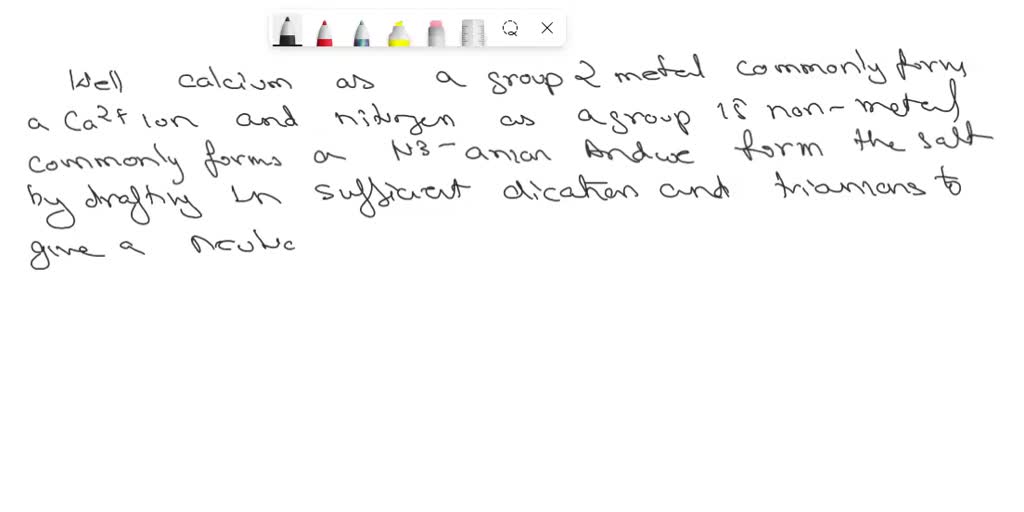 Well calcium as a group 2 metal commonly forms
a Ca2+ ion and nitrogen as a group 15 non-metal
commonly forms a N3- anion And we form the salt
by drafting in sufficient dications and trianions to
give a